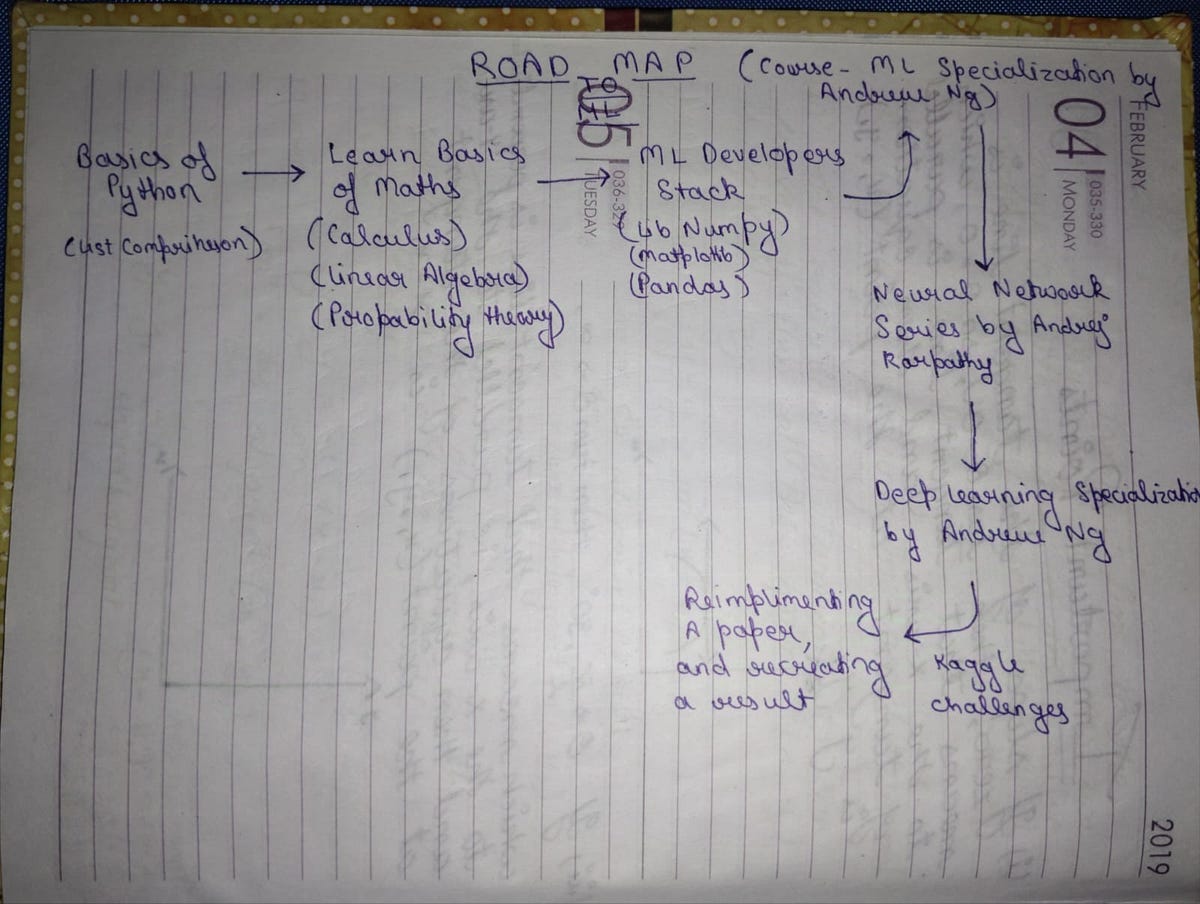 ROAD MAP
(Course - ML Specialization by
Andrew Ng)
Basics of
Python
(List Comprihesion)
Learn Basics
of Maths
(Calculus)
(Linear Algebra)
(Probability theory)
ML Developers
Stack
(Lib Numpy)
(Matplotlib)
(Pandas)
Neural Network
Series by Andrej
Karpathy
Deep Learning Specialization
by Andrew Ng
Reimplimenting
A paper,
and recreating
a result
Kaggle
challenges
FEBRUARY
04
035-330
MONDAY
05
TUESDAY
2019